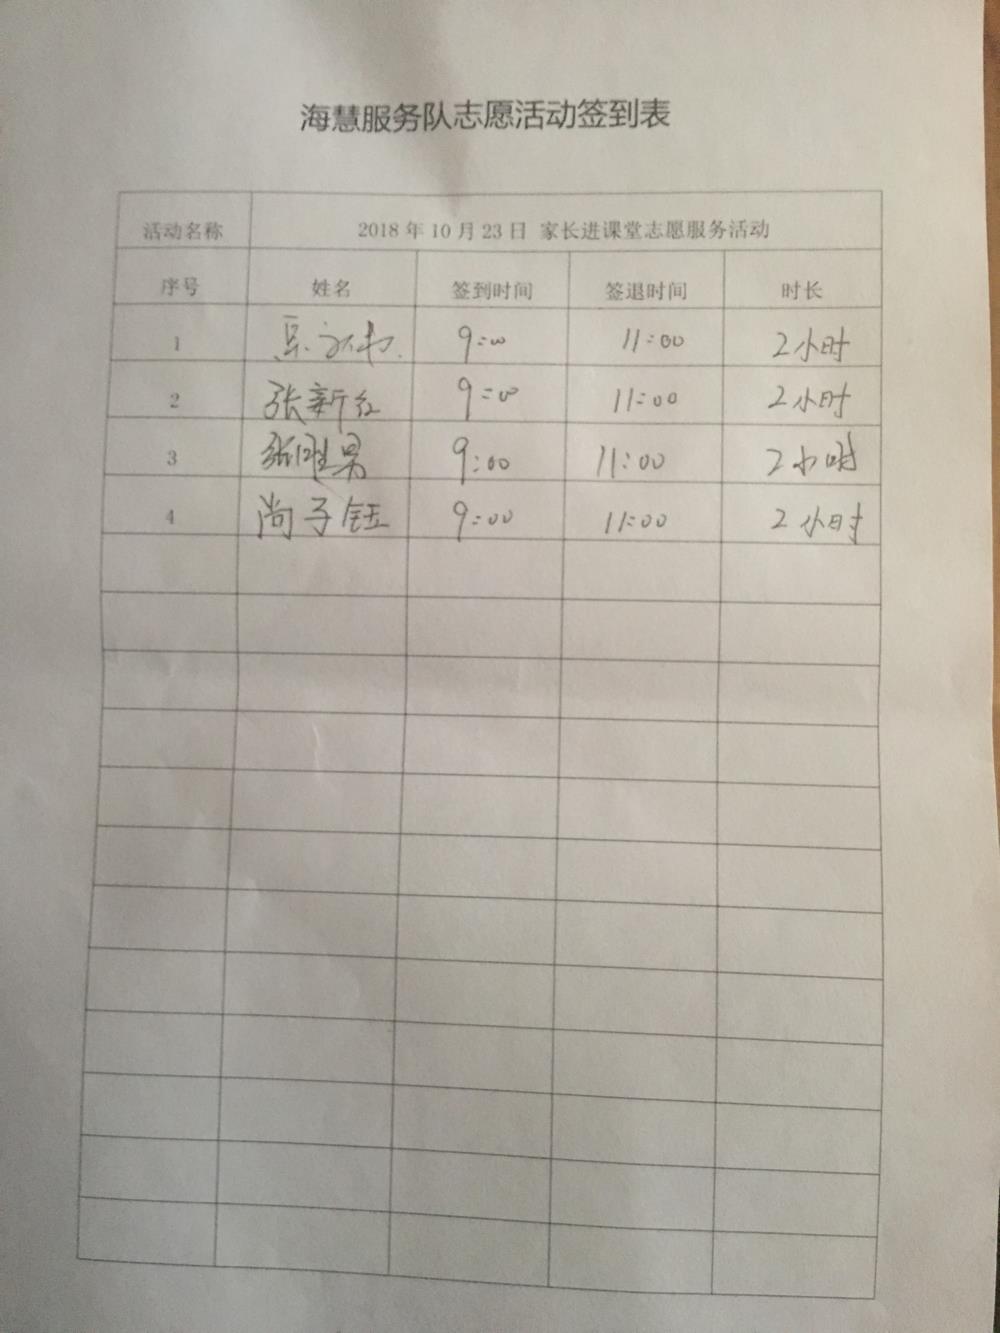 海慧服务队志愿活动签到表
活动名称 2018 年 10 月 23 日 家长进课堂志愿服务活动
序号 姓名 签到时间 签退时间 时长
1 9:00 11:00 2小时
2 张新红 9:00 11:00 2小时
3 张 男 9:00 11:00 2小时
4 尚子钰 9:00 11:00 2小时